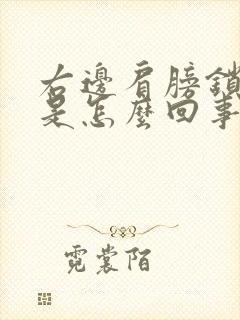 右邊肩膀鎖
是怎麼回事
霓裳陌